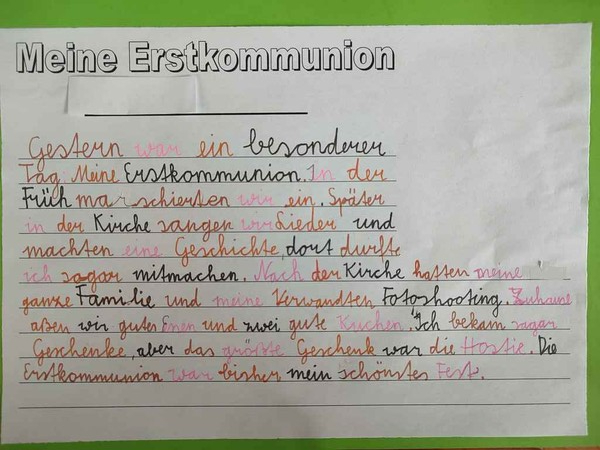 Meine Erstkommunion
Gestern war ein besonderer
Tag: Meine Erstkommunion. In der
Früh marschierten wir ein. Später
in der Kirche sangen wir Lieder und
machten eine Geschichte, dort durfte
ich sogar mitmachen. Nach der Kirche hatten meine
ganze Familie und meine Verwandten Fotoshooting. Zuhause
aßen wir guten und zwei gute Kuchen. Ich bekam sogar
Geschenke, aber das größte Geschenk war die Hostie. Die
Erstkommunion war bisher mein schönstes Fest.